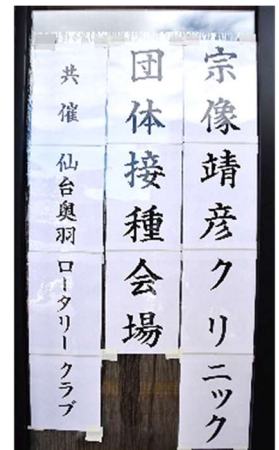 宗像靖彦クリニック
団体接種会場
共催 仙台奥羽ロータリークラブ